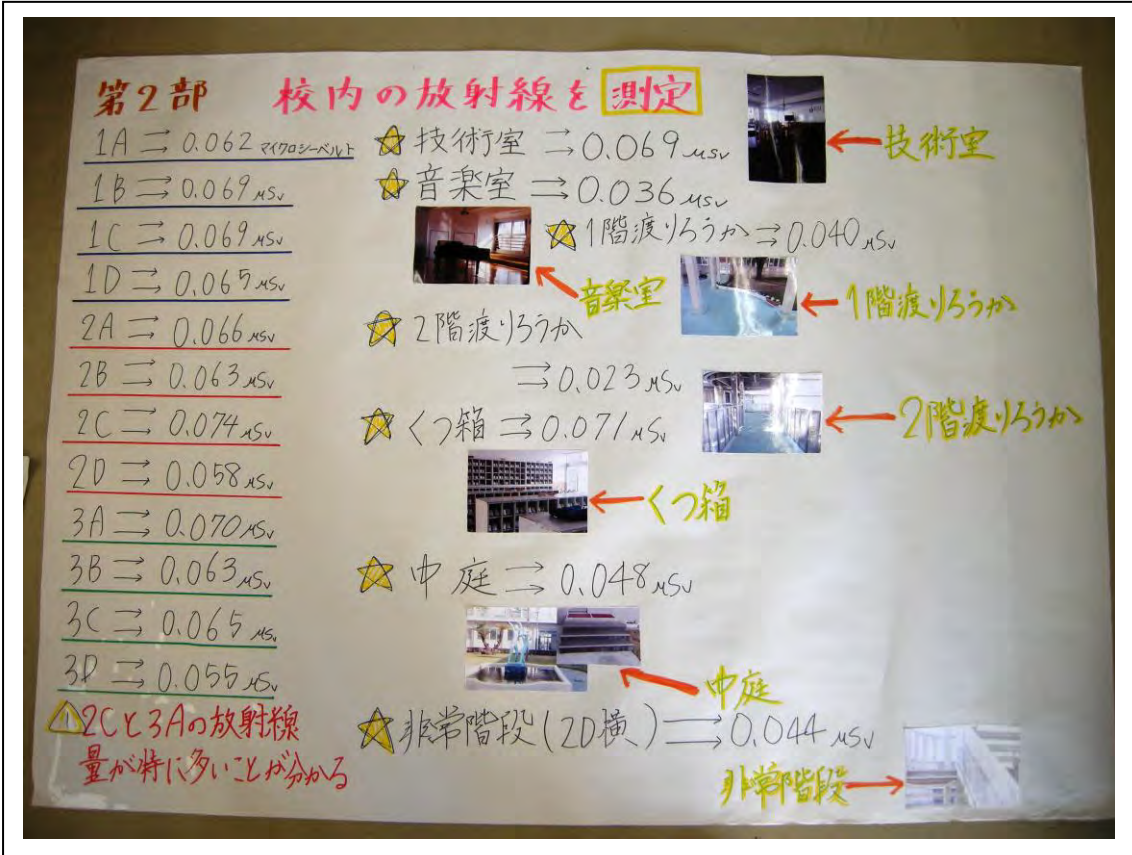 第2部 校内の放射線を測定
1A ⇒ 0.062 マイクロシーベルト
1B ⇒ 0.069 μSv
1C ⇒ 0.069 μSv
1D ⇒ 0.065 μSv
2A ⇒ 0.066 μSv
2B ⇒ 0.063 μSv
2C ⇒ 0.074 μSv
2D ⇒ 0.058 μSv
3A ⇒ 0.070 μSv
3B ⇒ 0.063 μSv
3C ⇒ 0.065 μSv
3D ⇒ 0.055 μSv
2Cと3Aの放射線
量が特に多いことが分かる
技術室 ⇒ 0.069 μSv
技術室
音楽室 ⇒ 0.036 μSv
音楽室
1階渡りろうか ⇒ 0.040 μSv
1階渡りろうか
2階渡りろうか
⇒ 0.023 μSv
2階渡りろうか
くつ箱 ⇒ 0.071 μSv
くつ箱
中庭 ⇒ 0.048 μSv
中庭
非常階段(2D横) ⇒ 0.044 μSv
非常階段